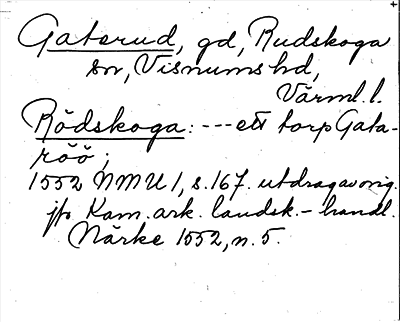 Gatsrud, gd, Rudskoga
sn, Visnums hd,
Värml. l.
Rödskoga: --- ett torp Gata-
röö;
1552 NMU 1, s. 167. utdrag av orig.
jfr Kam. ark. landsk.- handl.
Närke 1552, n. 5.